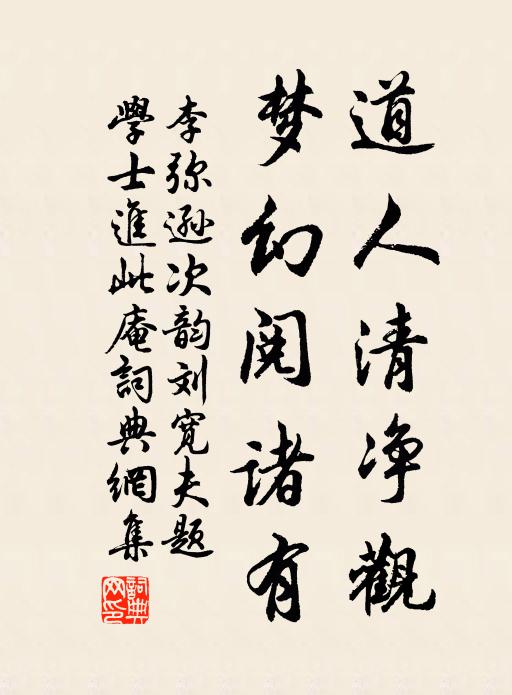 道人清净觀
梦幻阅諸有
李弥遜次韵刘寛夫题
學士進此庵詞典網集
詞典網印